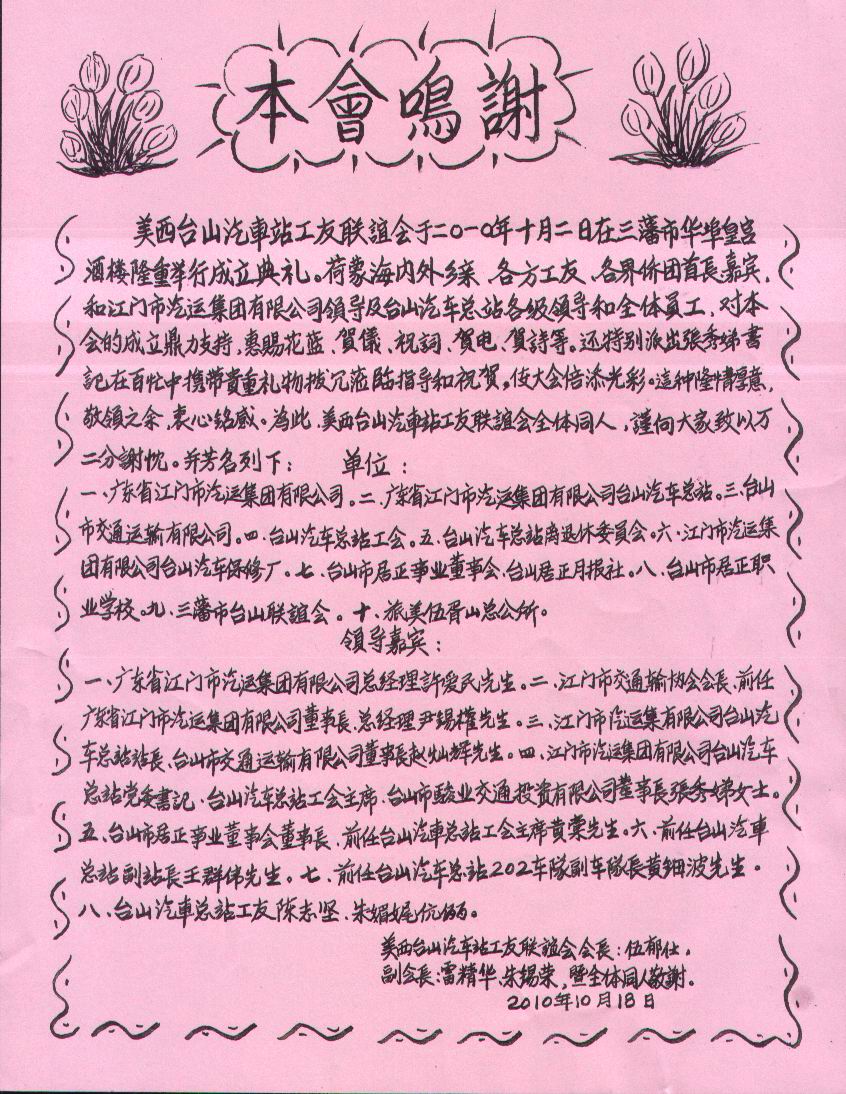 本會鳴謝
美西台山汽車站工友联誼会于二〇一〇年十月二日在三藩市华埠皇宫
酒楼隆重举行成立典礼。荷蒙海内外乡亲、各方工友、各界侨团首長嘉宾,
和江门市汽运集团有限公司領导及台山汽车总站各级领导和全体員工,对本
会的成立鼎力支持,惠赐花篮、賀儀、祝詞、賀电、賀詩等。还特别派出張秀娣書
記在百忙中携带貴重礼物拨冗蒞臨指导和祝賀,使大会倍添光彩。這种隆情厚意,
敬領之余,衷心銘感。為此,美西台山汽車站工友联誼会全体同人,謹向大家致以万
二分謝忱。并芳名列下: 单位:
一、广东省江门市汽运集团有限公司。二、广东省江门市汽运集团有限公司台山汽车总站。三、台山
市交通运输有限公司。四、台山汽车总站工会。五、台山汽车总站离退休委員会。六、江门市汽运集
团有限公司台山汽车保修厂。七、台山市居正事业董事会、台山居正月报社。八、台山市居正职
业学校。九、三藩市台山联誼会。十、旅美伍胥山总公所。
領导嘉宾:
一、广东省江门市汽运集团有限公司总经理許爱民先生。二、江门市交通输协会会長、前任
广东省江门市汽运集团有限公司董事長、总经理尹锡權先生。三、江门市汽运集有限公司台山汽
车总站站長、台山市交通运输有限公司董事長赵灿辉先生。四、江门市汽运集团有限公司台山汽车
总站党委書記、台山汽车总站工会主席、台山市駿业交通投资有限公司董事長張秀娣女士。
五、台山市居正事业董事会董事長、前任台山汽車总站工会主席黄棠先生。六、前任台山汽車
总站副站長王群伟先生。七、前任台山汽车总站202车隊副车隊長黄錮波先生。
八、台山汽車总站工友陈志坚、朱媚娓伉俪。
美西台山汽车站工友联誼会会長:伍郁仕,
副会長:雷精华、朱锡荣,暨全体同人敬謝。
2010年10月18日